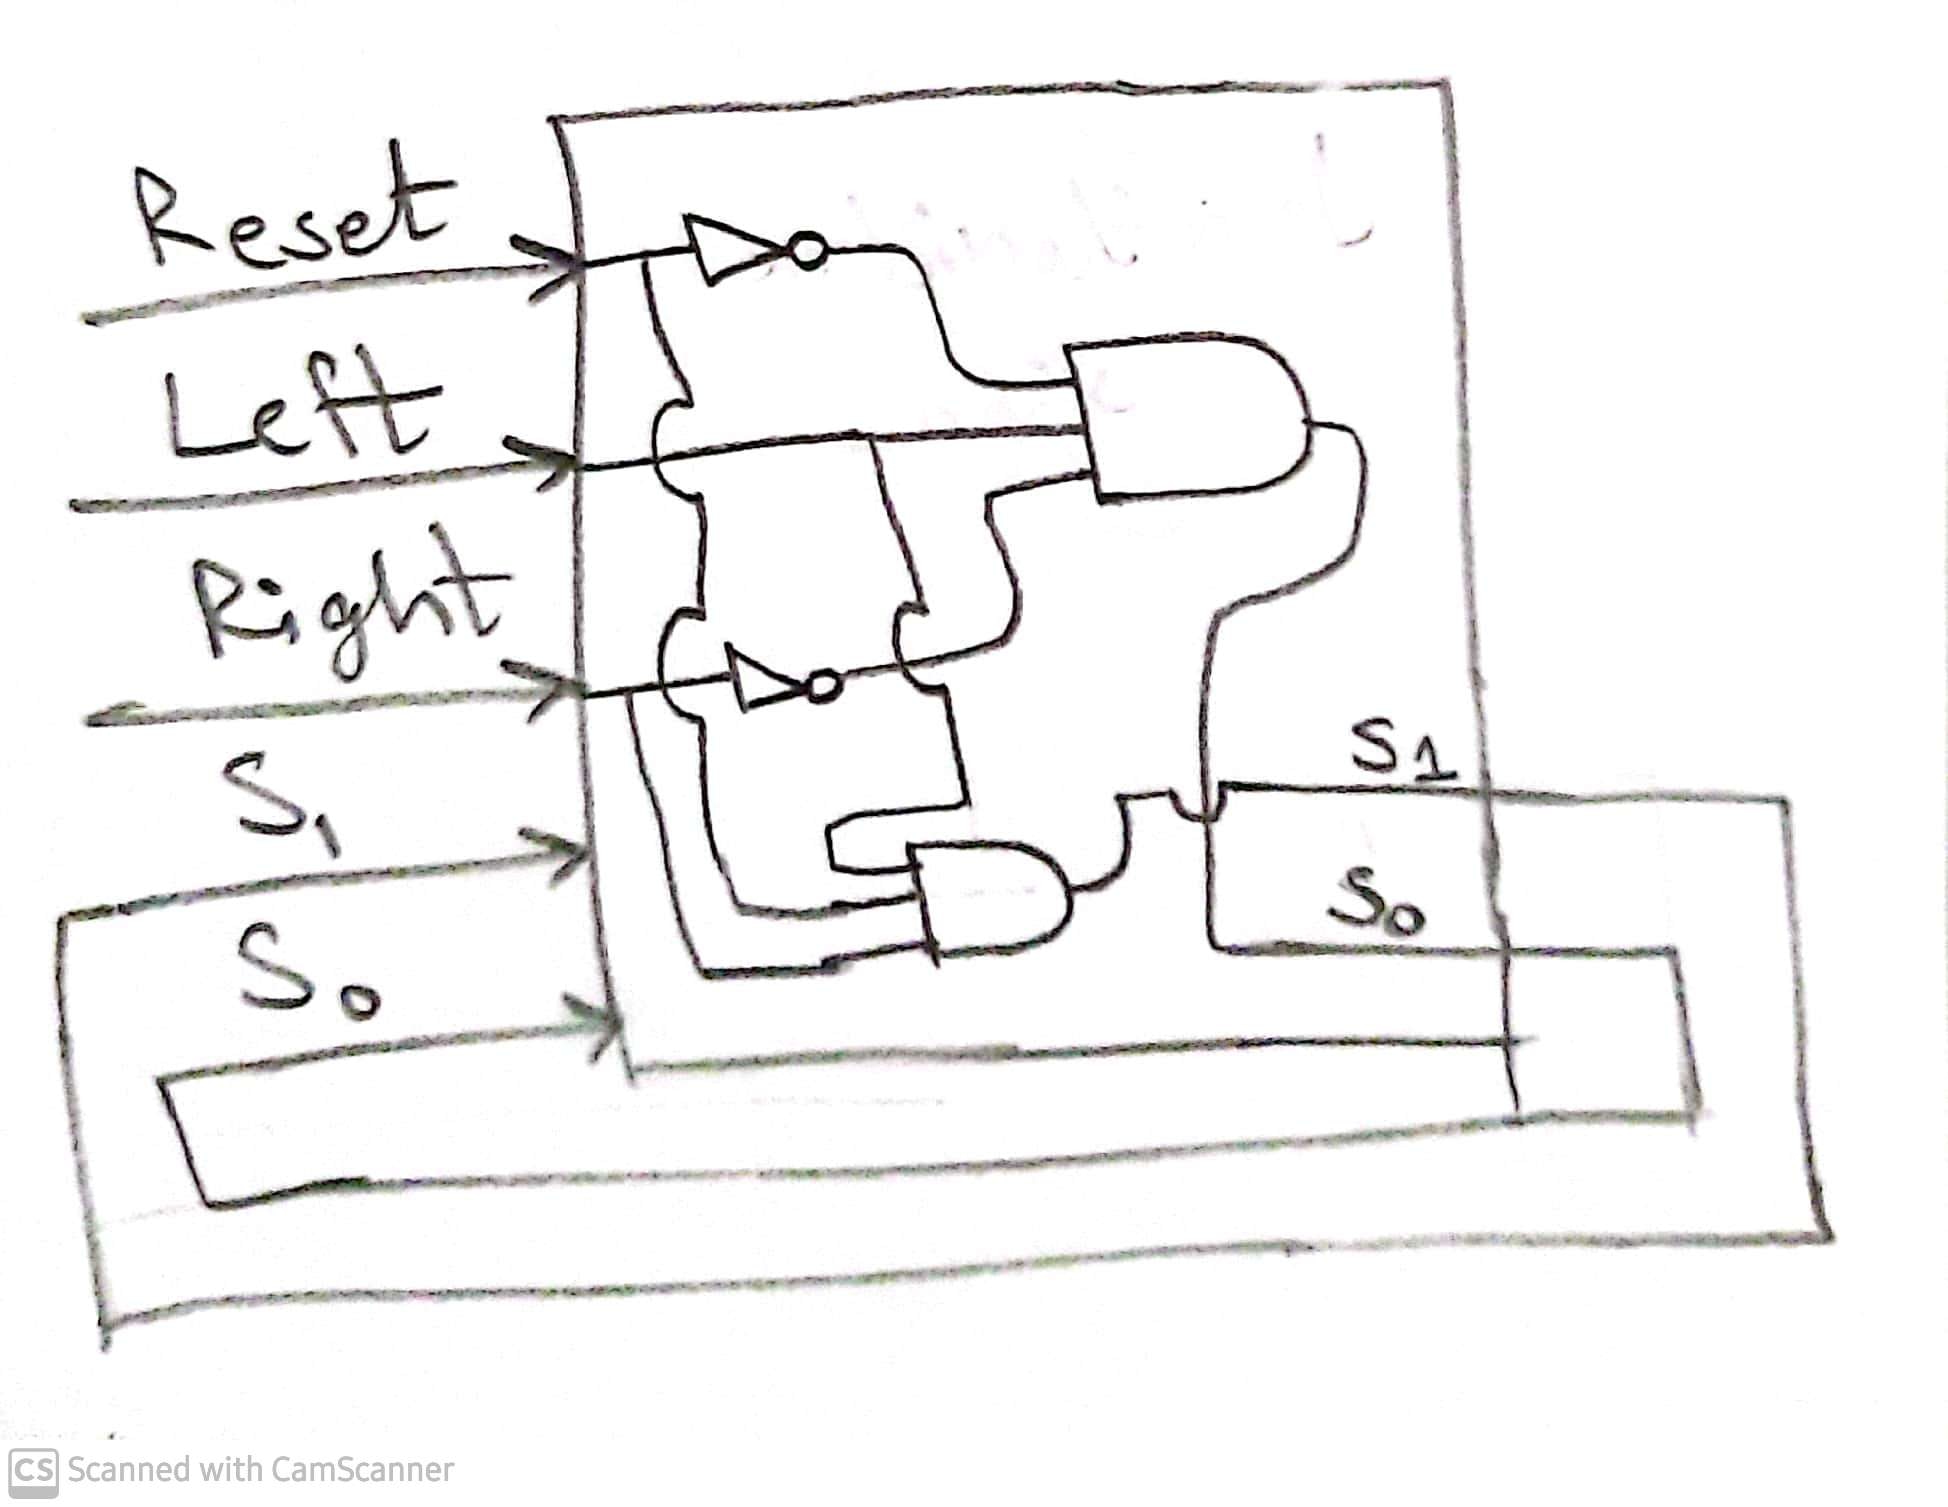 Reset
Left
Right
S1
S1
S0
S0
CS Scanned with CamScanner